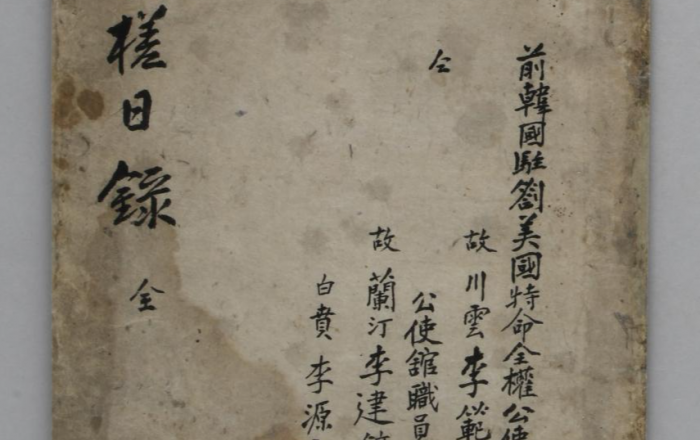 前韓國駐劄美國特命全權公使
故 川雲 李範
仝 公使館職員
故 蘭汀 李建
白賁 李源
槎日錄 全